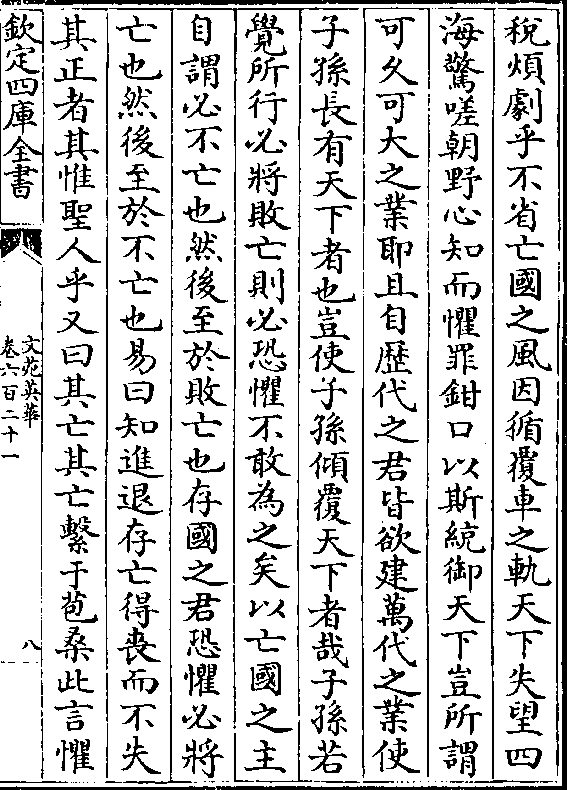 稅煩劇乎不省亡國之風因循覆車之軌天下失望四
海驚嗟朝野心知而懼罪鉗口以斯統御天下豈所謂
可久可大之業耶且自歴代之君皆欲建萬代之業使
子孫長有天下者也豈使子孫傾覆天下者哉子孫若
覺所行必將敗亡則必恐懼不敢為之矣以亡國之主
自謂必不亡也然後至於敗亡也存國之君恐懼必將
亡也然後至於不亡也易曰知進退存亡得喪而不失
其正者其惟聖人乎又曰其亡其亡繫于苞桑此言懼
欽定四庫全書
文苑英華
卷六百二十一
八